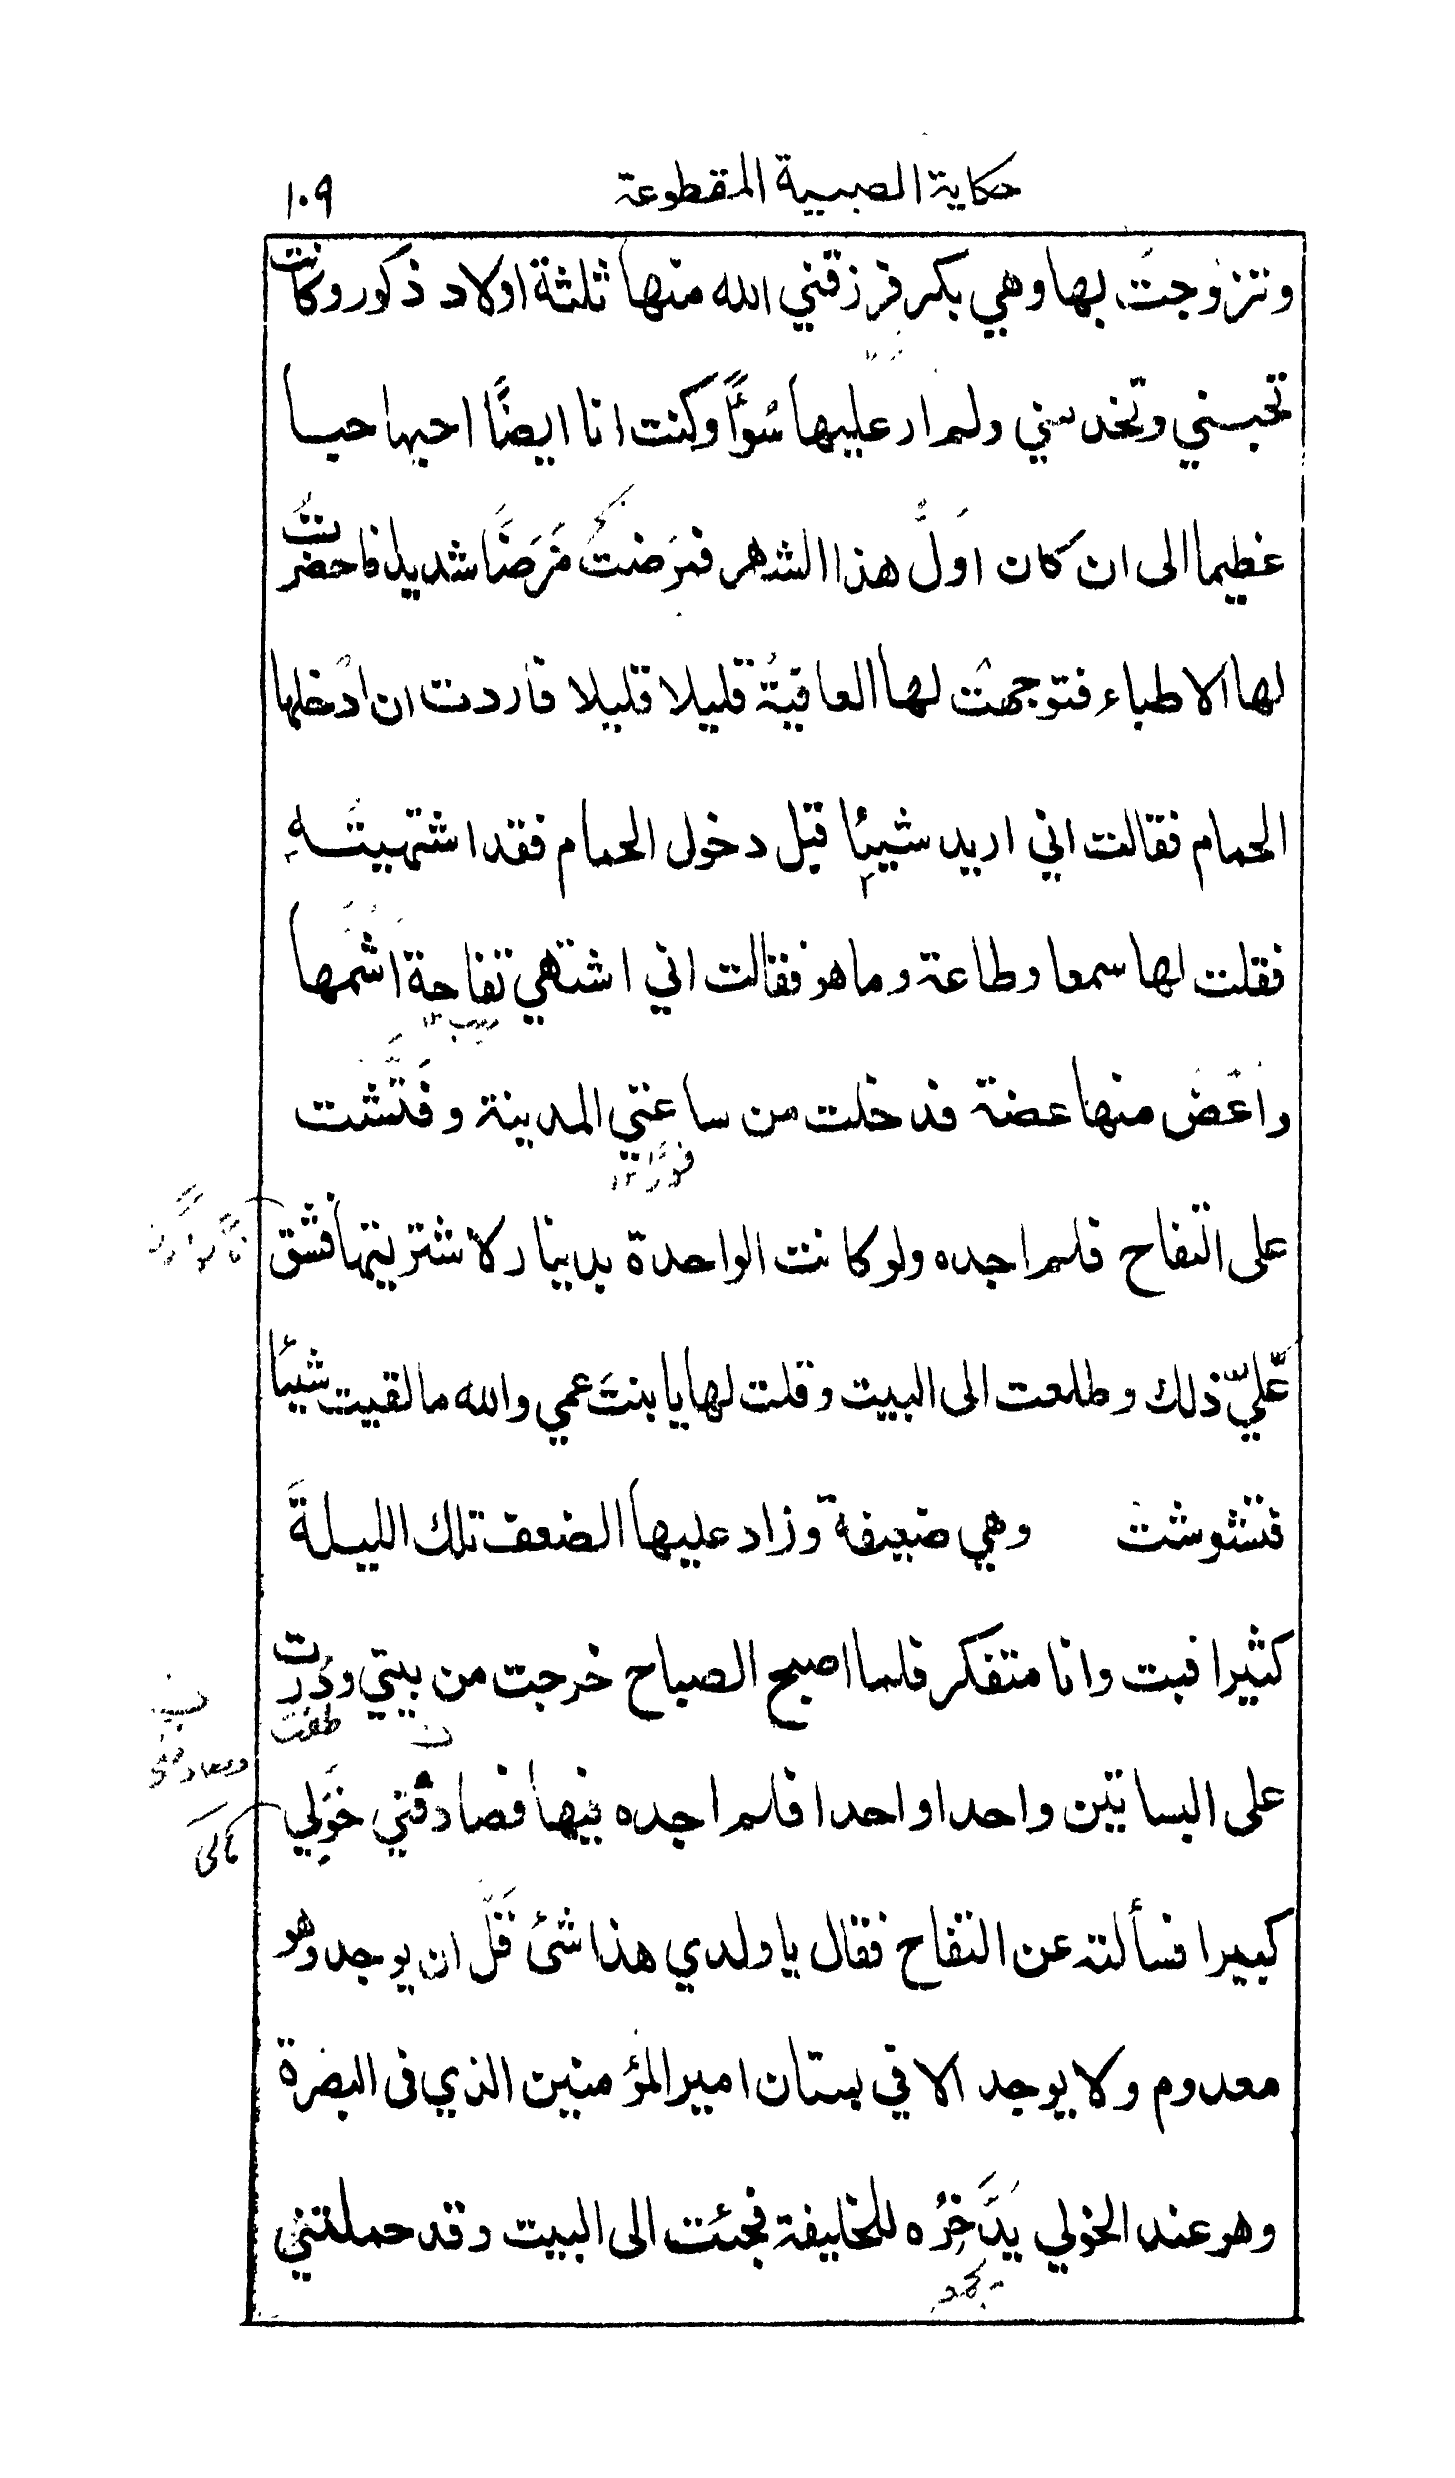 حكاية الصبية المقطوعة ١٠٩
وتزوجت بها وهي بكر فرزقني الله منها ثلثة اولاد ذكور وكانت
تحبني وتخدمني ولم ار عليها سُوأً وكنت انا ايضًا احبها حبا
عظيما الى ان كان اولُ هذا الشهر فمرَضتْ مَرَضًا شديدا فاحضرتُ
لها الاطباء فتوجهتْ لها العافيةُ قليلا قليلا فاردت ان ادْخلها
الحمام فقالت اني اريد شيئًا قبل دخولى الحمام فقد اشتهيتَهِ
فقلت لها سمعا وطاعة وما هو فقالت اني اشتهي تفاحة اَشُمُّها
سيب ١٢
واَعُضَّ منها عضة فدخلت من ساعتي المدينة وفَتَّشت
فورًا ١٢
على التفاح فلم اجده ولو كانت الواحدة بدينار لاشتريتها فشق
عَلَيَّ ذلك وطلعت الى البيت وقلت لها يا بنتَ عمي والله ما لقيت شيئًا
فتشوشت وهي ضعيفة وزاد عليها الضعف تلك الليلةَ
كثيرا فبت وانا متفكر فلما اصبح الصباح خرجت من بيتي ودُرت
طفت
على البساتين واحدا واحدا فلم اجده فيها فصادفني خَوَلِي
كبيرا فسألته عن التفاح فقال يا ولدي هذا شئ قَلَّ ان يوجد وهو
معدوم ولا يوجد الا في بستان امير المؤمنين الذي فى البصرة
وهو عند الخولي يَدَّخِرُه للخليفة فجئت الى البيت وقد حملتني